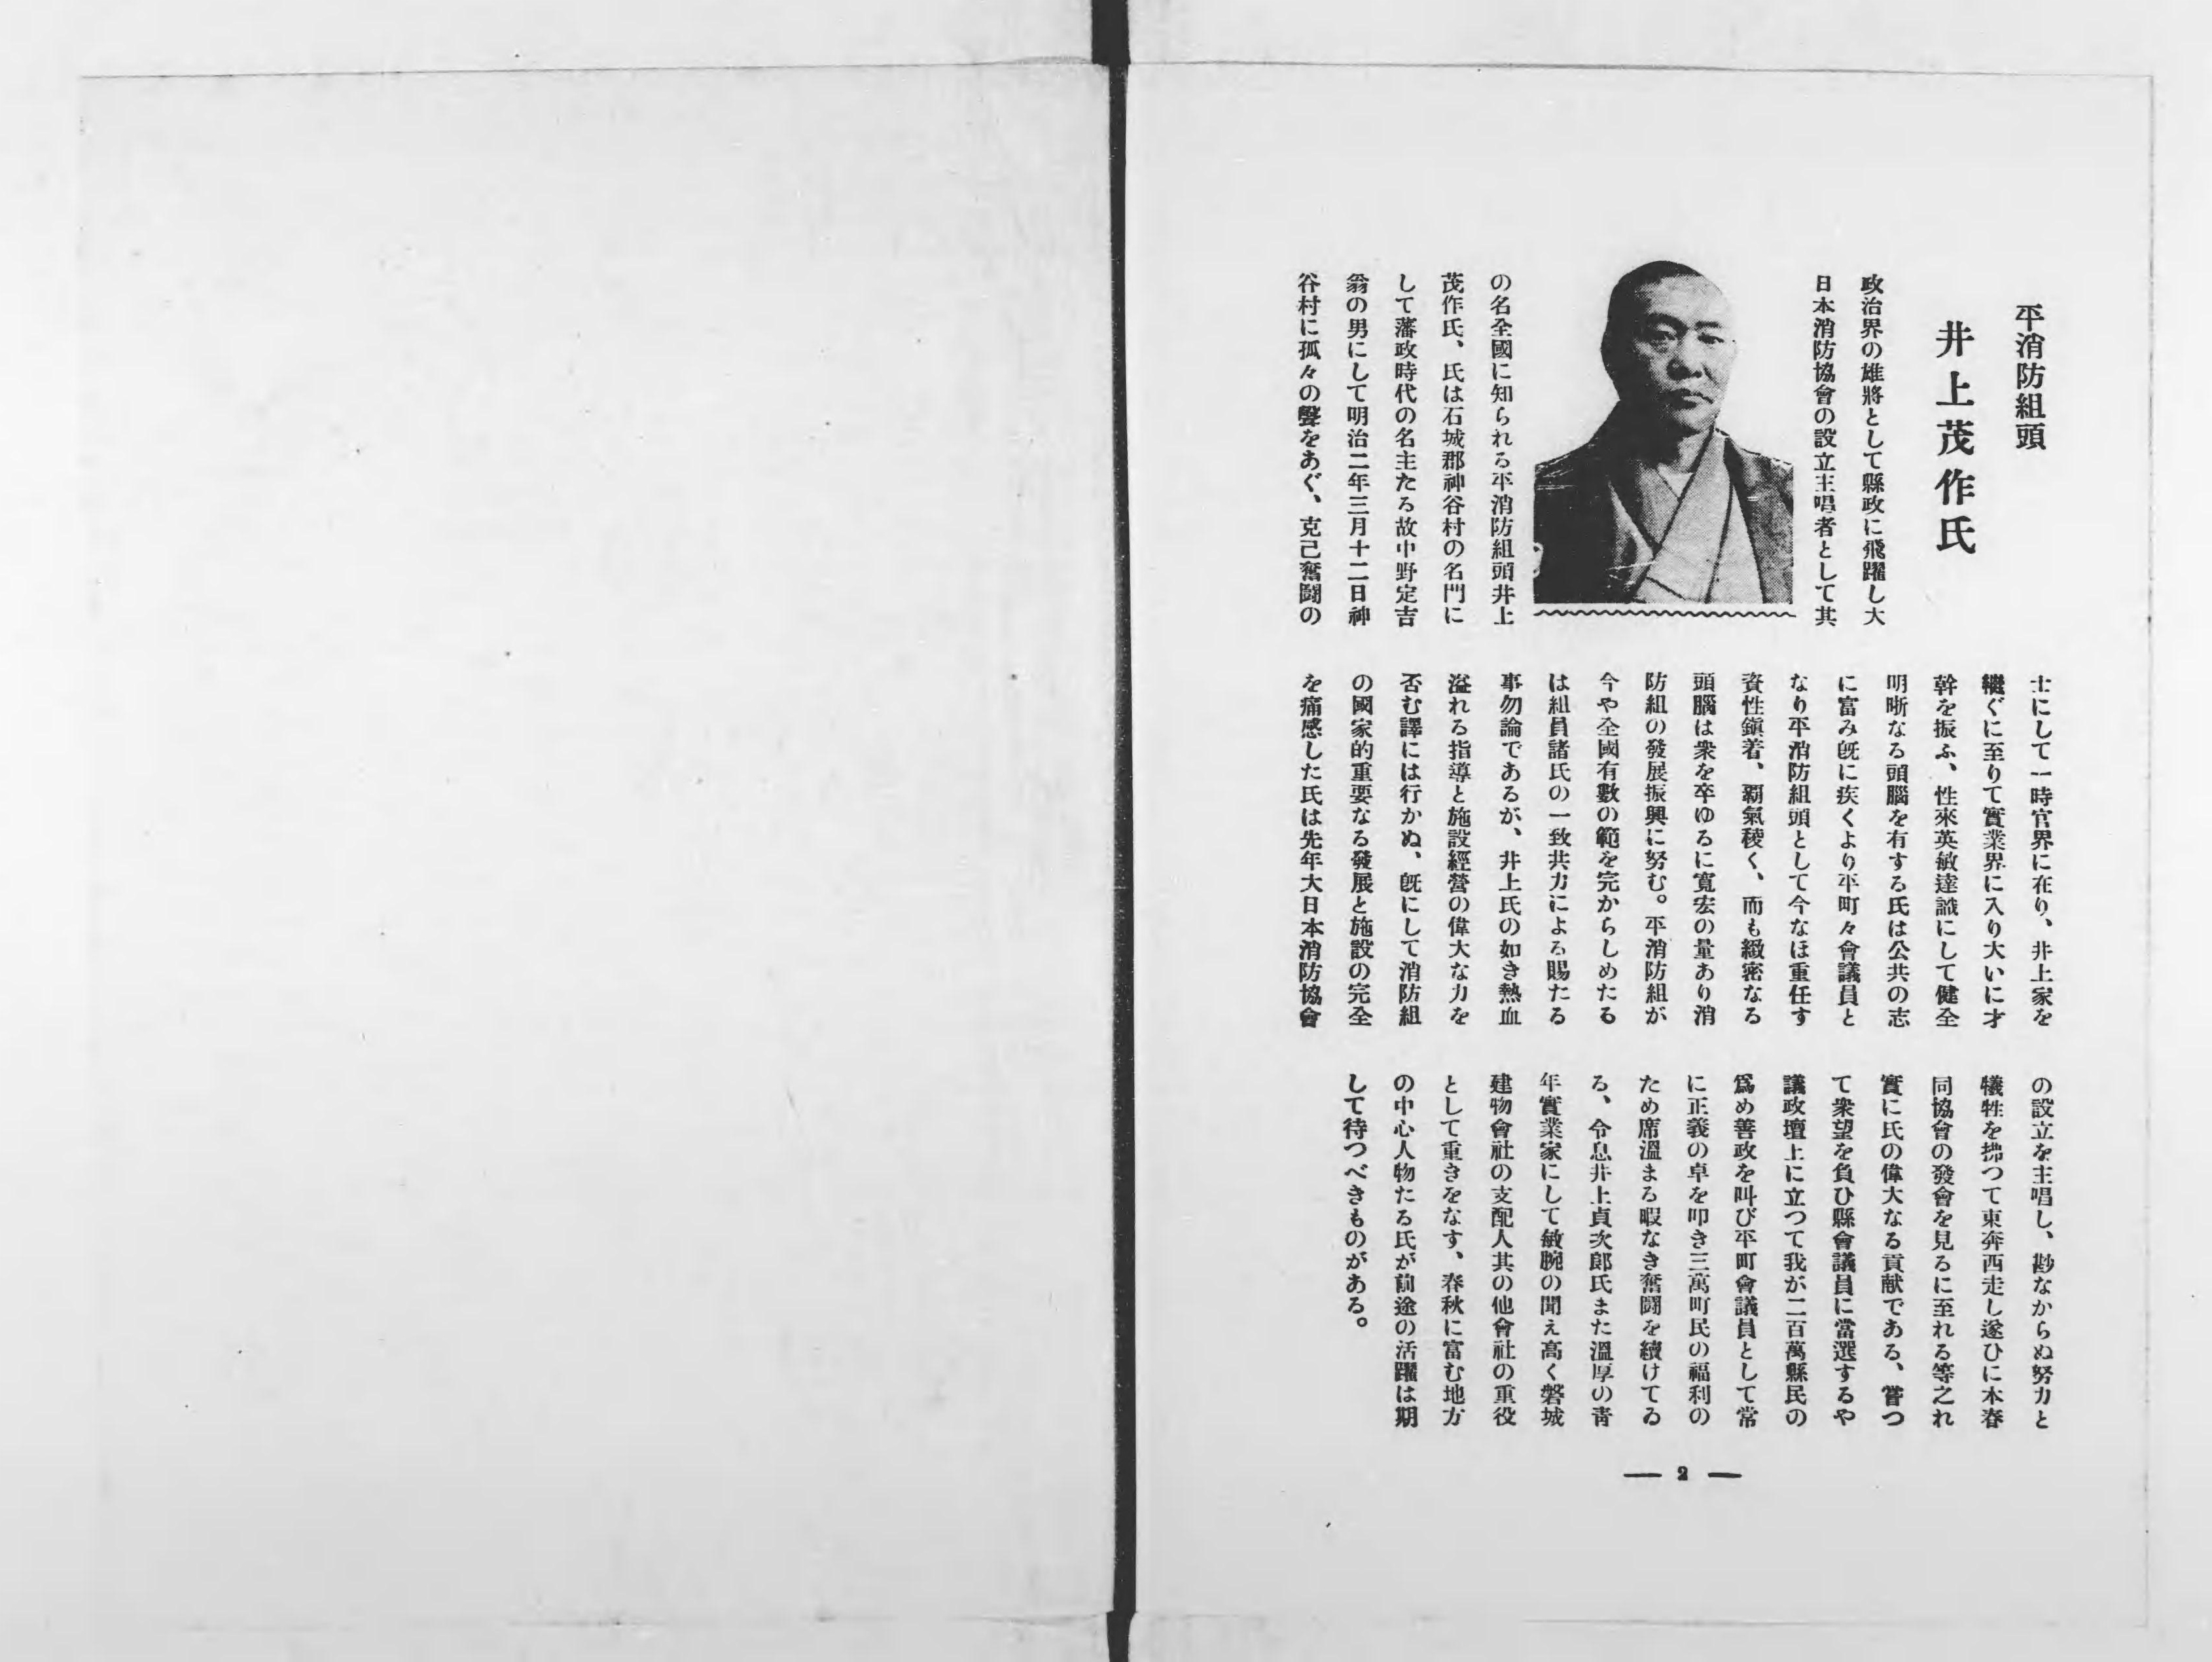 平消防組頭
井上茂作氏
政治界の雄將として縣政に飛躍し大
日本消防協會の設立主唱者として其
の名全國に知られる平消防組頭井上
茂作氏、氏は石城郡神谷村の名門に
して藩政時代の名主たる故中野定吉
翁の男にして明治二年三月十二日神
谷村に孤々の聲をあぐ、克己奮闘の
士にして一時官界に在り、井上家を
繼ぐに至りて實業界に入り大いに才
幹を振ふ、性來英敏達識にして健全
明晰なる頭腦を有する氏は公共の志
に富み旣に疾くより平町々會議員と
なり平消防組頭として今なほ重任す
資性鎭着、覇氣稜く、而も緻密なる
頭腦は衆を卒ゆるに寬宏の量あり消
防組の發展振興に努む。平消防組が
今や全國有數の範を完からしめたる
は組員諸氏の一致共力による賜たる
事勿論であるが、井上氏の如き熱血
溢れる指導と施設經營の偉大な力を
否む譯には行かぬ、旣にして消防組
の國家的重要なる發展と施設の完全
を痛感した氏は先年大日本消防協會
の設立を主唱し、尠なからぬ努力と
犠牲を拂つて東奔西走し遂ひに本春
同協會の發會を見るに至れる等之れ
實に氏の偉大なる貢献である、嘗つ
て衆望を負ひ縣會議員に當選するや
議政壇上に立つて我が二百萬縣民の
爲め善政を叫び平町會議員として常
に正義の卓を叩き三萬町民の福利の
ため席溫まる暇なき奮闘を續けてゐ
る、令息井上貞次郎氏また溫厚の靑
年實業家にして敏腕の聞え高く磐城
建物會社の支配人其の他會社の重役
として重きをなす、春秋に富む地方
の中心人物たる氏が前途の活躍は期
して待つべきものがある。
— 2 —